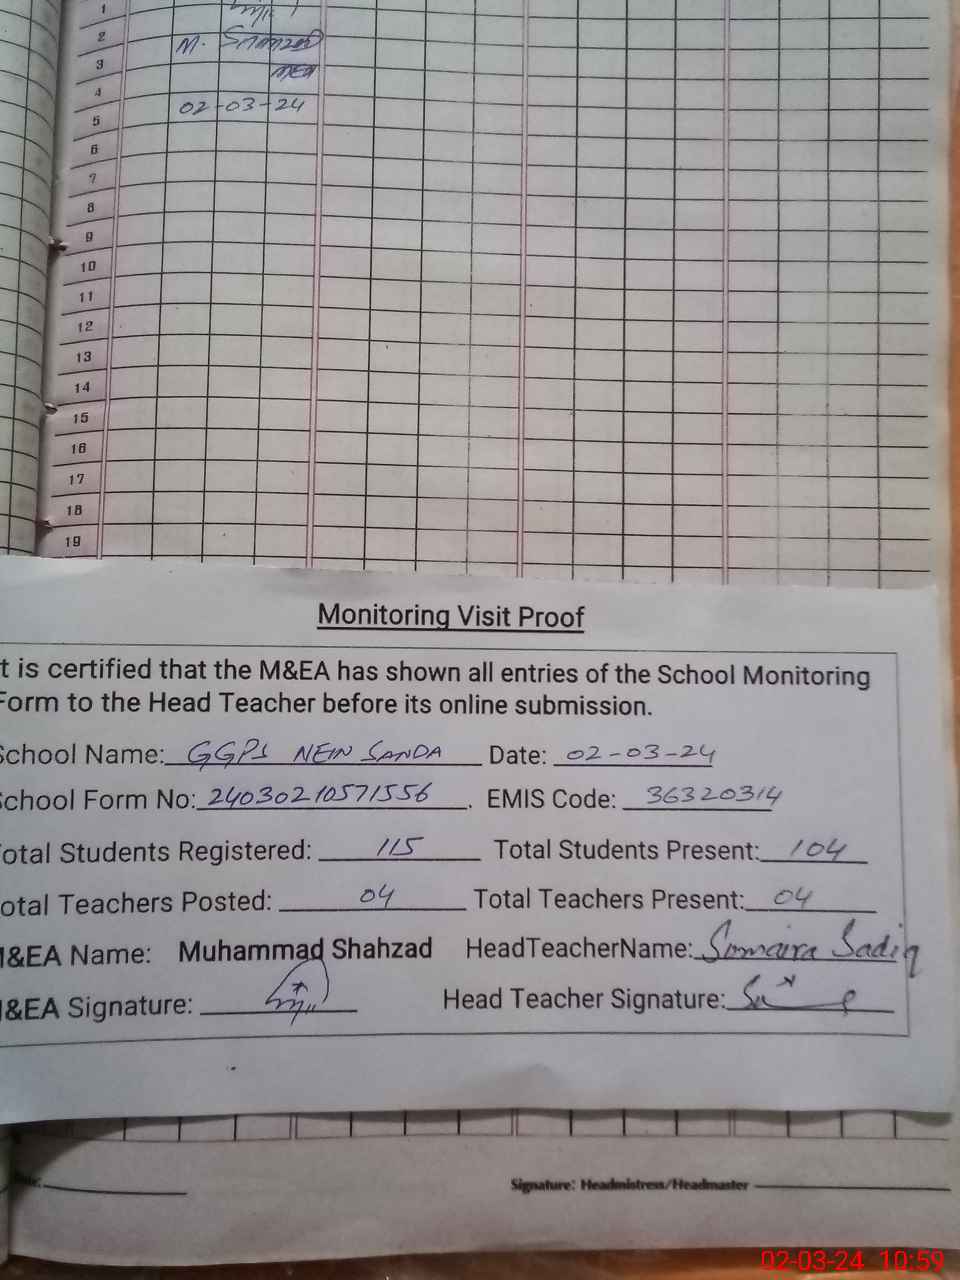 1
2 M. Shahzad
3 MEA
4
5 02-03-24
6
7
8
9
10
11
12
13
14
15
16
17
18
19
Monitoring Visit Proof
t is certified that the M&EA has shown all entries of the School Monitoring
Form to the Head Teacher before its online submission.
School Name: GGPS NEIN SANDA Date: 02-03-24
School Form No: 24030210571556. EMIS Code: 36320314
otal Students Registered: 115 Total Students Present: 104
otal Teachers Posted: 04 Total Teachers Present: 04
M&EA Name: Muhammad Shahzad HeadTeacherName: Somaira Sadiq
&EA Signature: Head Teacher Signature:
Date: Signature: Headmistress/Headmaster
02-03-24 10:59